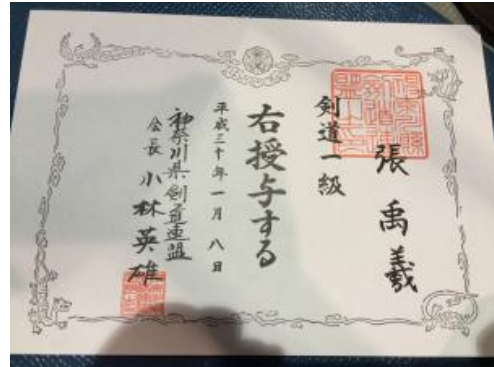 張禹羲
剣道一級
右授与する
平成三十年一月八日
神奈川県剣道連盟
会長 小林英雄